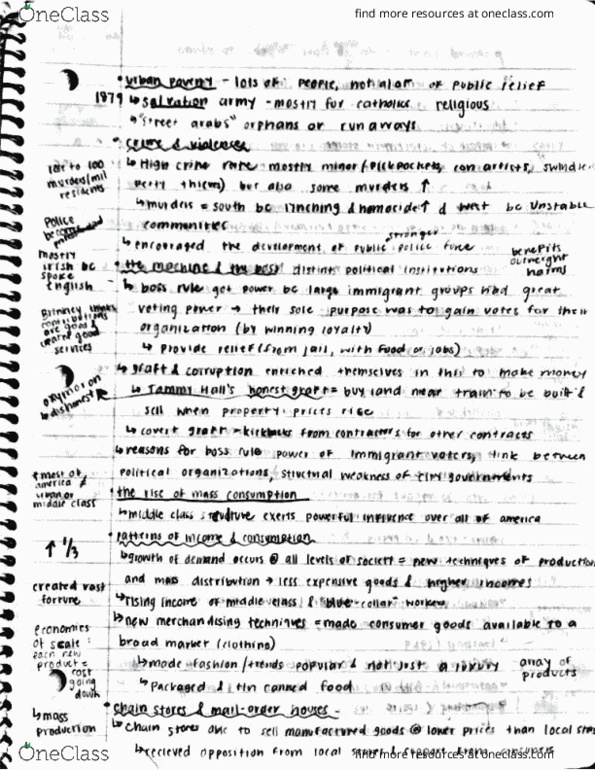 OneClass
find more resources at oneclass.com
• urban poverty - lots of people, not alot of public relief
1879 ↳ salvation army - mostly for catholics religious
↳ "street arabs" orphans or runaways
• crime & violence
↳ High crime rate mostly minor (pickpockets, con artists, swindlers
petty thieves) but also some murders ↑
rate to 100
murders/mil
residents
↳ murders = south bc lynching & homocide ↑ & west bc unstable
communities
↳ encouraged the development of public stronger police force
Police
become
mostly
irish bc
spoke
english
benefits
outweight
harms
• the machine & the boss distinct political institutions
↳ boss rule get power bc large immigrant groups had great
voting power → their sole purpose was to gain votes for their
organization (by winning loyalty)
↳ provide relief (from jail, with food or jobs)
contributions
are good &
created good
services
↳ graft & corruption enriched themselves in this to make money
↳ Tammy Hall's honest graft = buy land near train to be built &
sell when property prices rise
oxymoron
↳ dishonest
↳ covert graft = kickbacks from contractors for other contracts
↳ reasons for boss rule power of immigrant voters, link between
political organizations, structural weakness of city governments
most of
america ≠
urban or
middle class
• the rise of mass consumption
↳ middle class structure exerts powerful influence over all of america
• patterns of income & consumption
↑ 1/3
↳ growth of demand occurs @ all levels of society = new techniques of production
and mass distribution → less expensive goods & higher incomes
created vast
fortune
↳ rising income of middle class & "blue-collar" workers
↳ new merchandising techniques = made consumer goods available to a
broad market (clothing)
economies
of scale:
each new
product =
cost
going
down
↳ made fashion/trends popular & not just a luxury
array of
products
↳ Packaged & tin canned food
• chain stores & mail-order houses -
↳ mass
production
↳ chain stores able to sell manufactured goods @ lower prices than local stores
↳ recieved opposition from local stores & support from consumers
OneClass
find more resources at oneclass.com